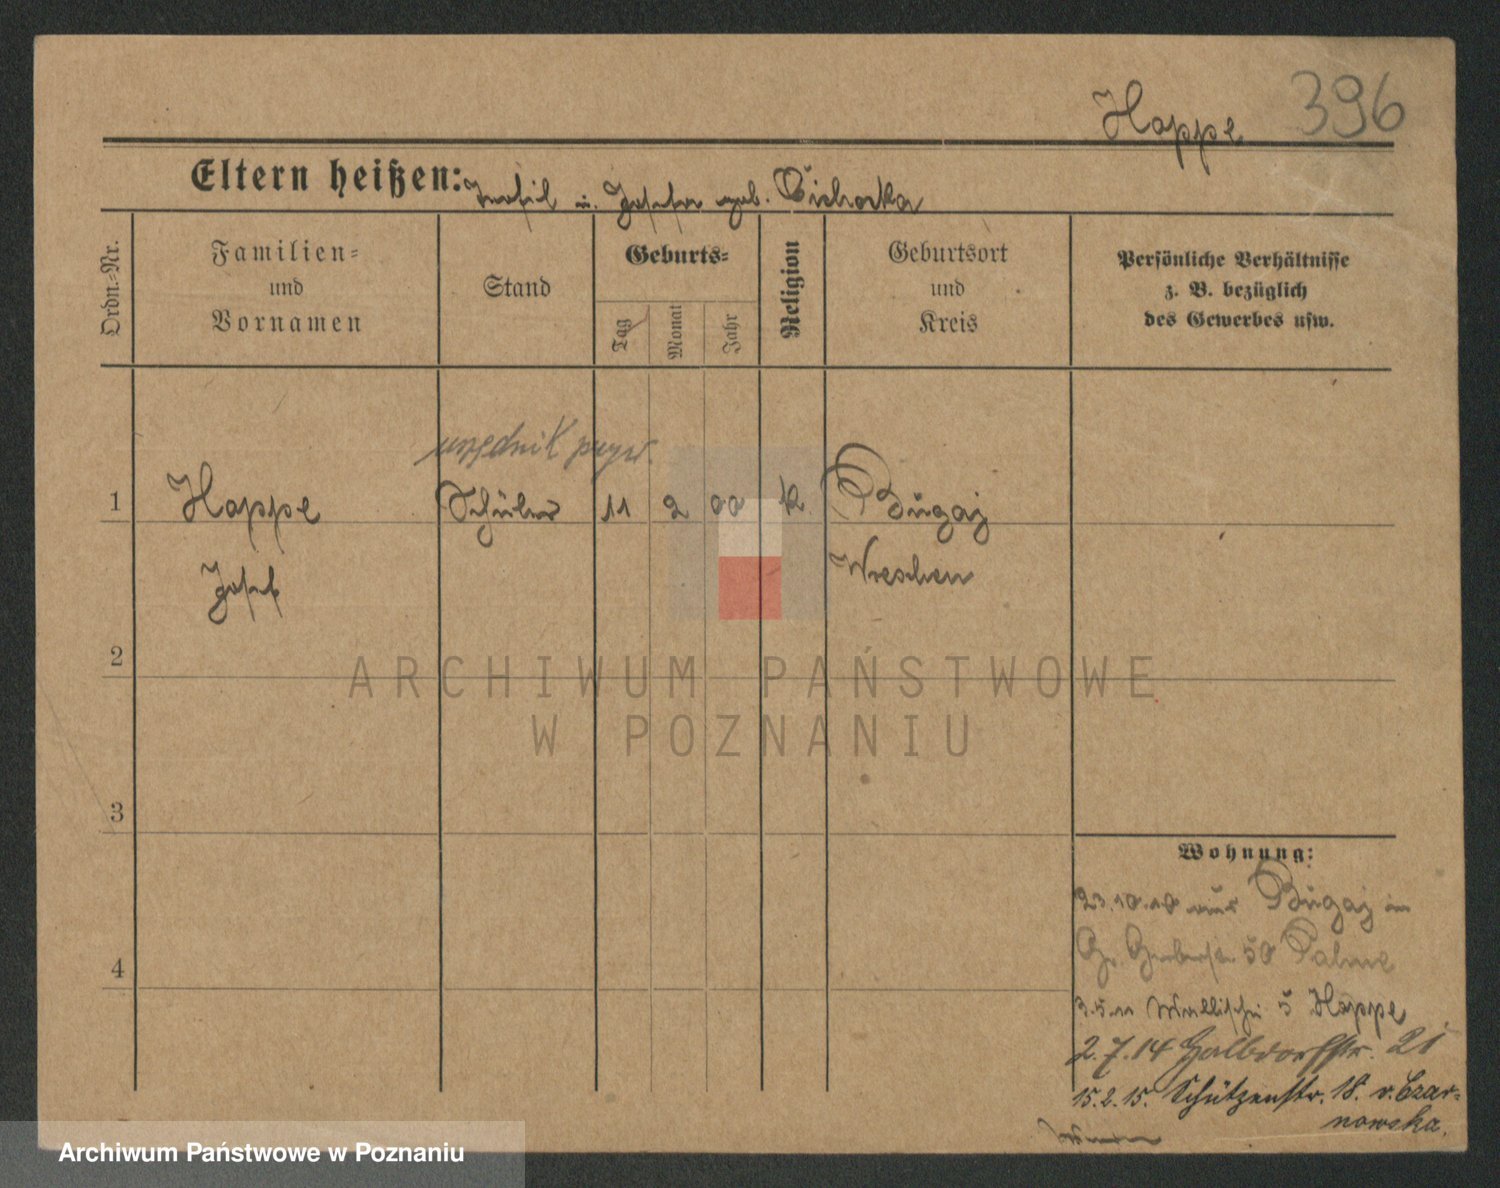 Happe 396
Eltern heißen: u. Josefa geb. Cichocka
Ordn.-Nr.
Familien-
und
Vornamen
Stand
Geburts-
Tag
Monat
Jahr
Religion
Geburtsort
und
Kreis
Persönliche Verhältnisse
z. B. bezüglich
des Gewerbes usw.
urzędnik pryw.
1 Happe Schüler 11 2 00 k. Bugaj
Josef Wreschen
2
3
4
ARCHIWUM PAŃSTWOWE
W POZNANIU
Wohnung:
23.10.10 aus Bugaj in
Gr. Gerberstr 50 Palme
3.5.11 Wallischei 5 Happe
2.7.14 Halbdorfstr. 21
15.2.15. Schützenstr. 18. v. Czar-
nowska.
Archiwum Państwowe w Poznaniu